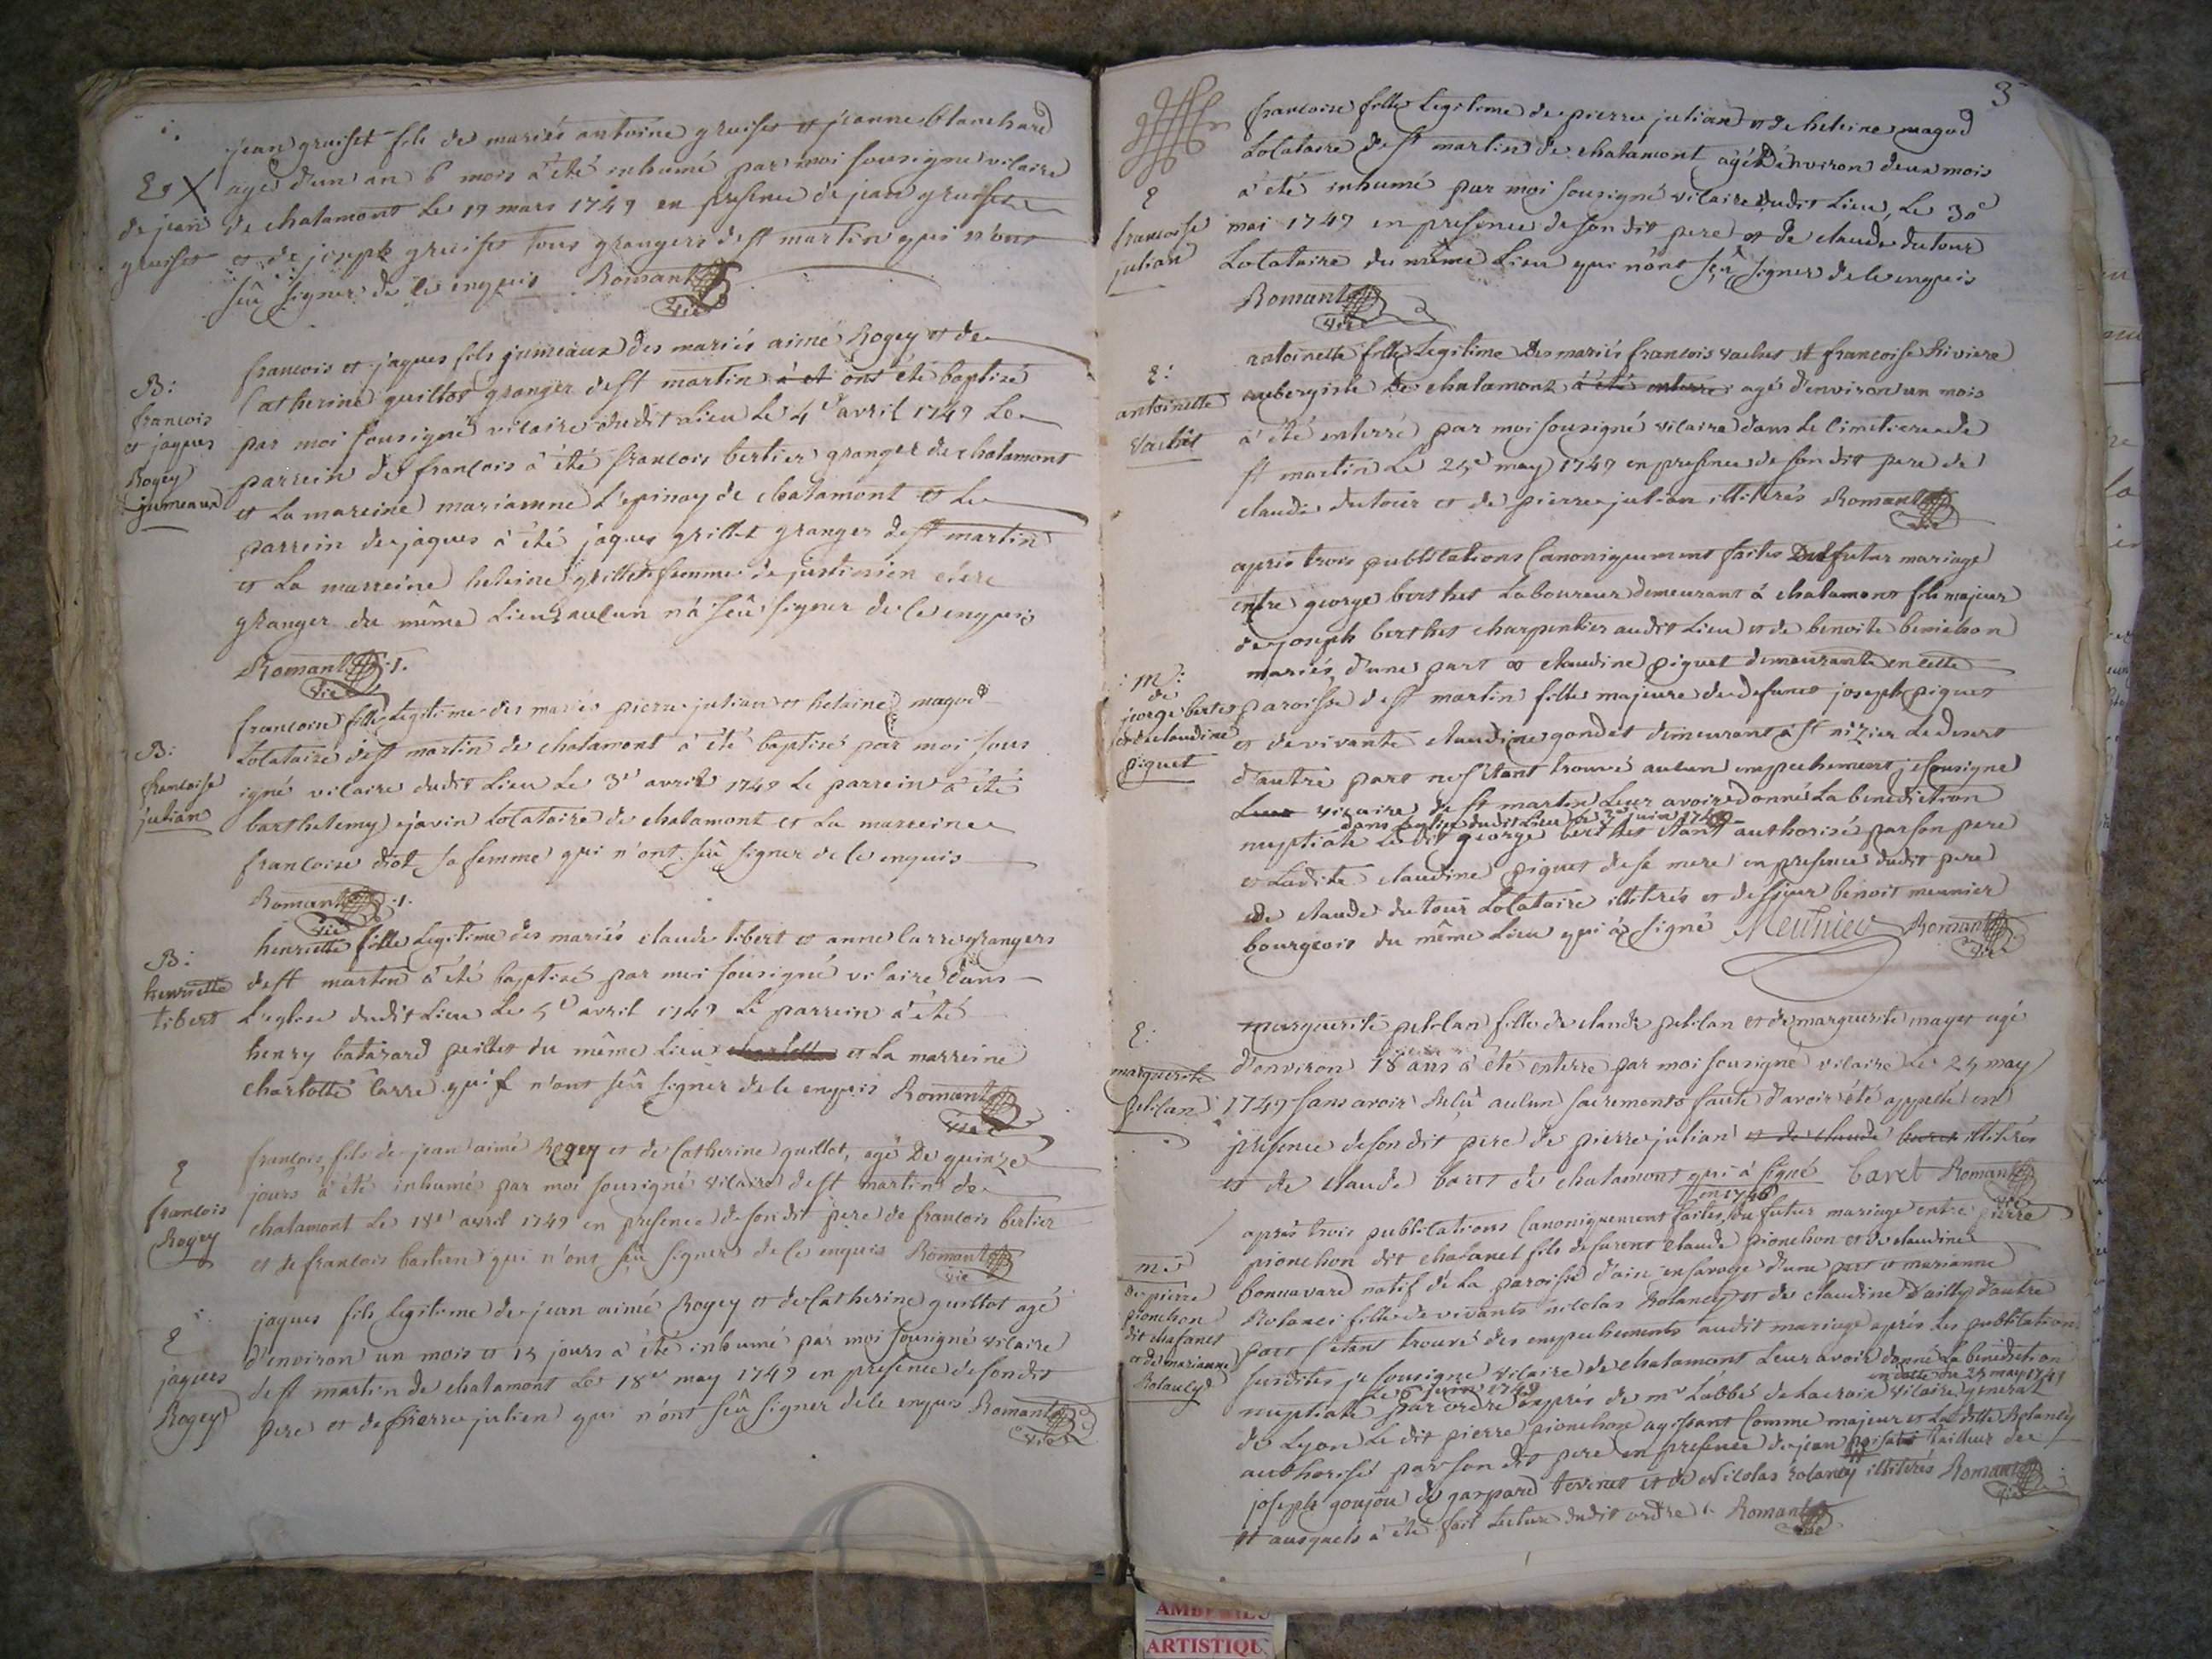 jean gruiset fils de mariés antoine gruiset et jeanne blanchard
agé d'un an 6 mois à été inhumé par moi sousigné vicaire
de chatamont le 19 mars 1749 en presence de jean gruiset
et de joseph gruiset tous grangers de st martin qui n'ont
sçû signer de ce enquis Romant
vic
E
de jean
gruiset
francois et jaques fils jumeaux des mariés aimé Rogey et de
Catherine guillot granger de st martin à et ont été baptisé
par moi sousigné vicaire dudit Lieu Le 4e avril 1749 Le
parrein de francois à été francois bertier granger de chatamont
et La mareine mariamne L'epinay de chatamont et Le
parrein de jaques à été jaques grillet granger de st martin
et La marreine heleine grillet femme de justinien
granger du même Lieu aucun n'à sçû signer de ce enquis
Romant
vic
B:
francois
et jaques
Rogey
jumeaux
francoise fille Legitime des mariés pierre julian et helaine magod
Locataire de st martin de chatamont à été baptisé par moi sous
igné vicaire dudit Lieu Le 3e avril 1749 Le parrein à été
barthelemy javin Locataire de chatamont et La marreine
francoise diot sa femme qui n'ont sçû signer de ce enquis
Romant
vic
B:
francoise
julian
henriette fille Legitime des mariés claude tibert et anne Carre grangers
de st martin à été baptisé par moi sousigné vicaire dans
L'eglise dudit Lieu Le 5e avril 1749 Le parrein à été
henry batarard peillet du même Lieu et La marreine
charlotte Carre qui n'ont sçû signer de ce enquis Romant
vic
B:
henriette
tibert
francois fils de jean aimé Rogey et de Catherine guillot, agé De quinze
jours à été inhumé par moi sousigné vicaire de st martin de
chatamont Le 18e avril 1749 en presence de son dit pere de francois bertier
et de francois bastien qui n'ont sçû signer de ce enquis Romant
vic
E
francois
Rogey
jaques fils Legitime de jean aimé Rogey et de Catherine guillot agé
d'environ un mois et 15 jours à été inhumé par moi sousigné vicaire
de st martin de chatamont Le 18e may 1749 en presence de son dit
pere et de pierre julien qui n'ont sçû signer de ce enquis Romant
vic
E
jaques
Rogey
3
francoise fille Legitime de pierre julian et de heleine magod
Locataire de st martin de chatamont agéé d'environ deux mois
à été inhumé par moi sousigné vicaire dudit Lieu, Le 30e
mai 1749 en presence de son dit pere et de claude dutour
Locataire du même Lieu qui n'ont sçû signer de ce enquis
Romant
vic
E
francoise
julian
antoinette fille Legitime Des mariés francois vachet et francoise Riviere
aubergiste De chatamont à été enterré agé d'environ un mois
à été enterré par moi sousigné vicaire dans Le Cimetiere de
st martin Le 25e may 1749 en presence de son dit pere de
claude dutour et de pierre julian illiterés Romant
vic
E:
antoinette
Vachet
après trois publications Canoniquement faites Du futur mariage
entre george berthet Laboureur demeurant à chatamont fils majeur
de joseph berthet charpentier audit Lieu et de benoite benichon
mariés, d'une part et claudine piquet demeurante en cette
paroisse de st martin fille majeure de defunct joseph piquet
et de vivante claudine gondet demeurant à st nizier Le desert
d'autre part ne s'etant trouvé aucun empechement je sousigné
Leur vicaire de st martin Leur avoir donné La benediction
dans L'eglise dudit Lieu ce 3e juin 1749
nuptiale Ledit george berthet étant authorisé par son pere
et Ladite claudine piquet de sa mere en presence dudit pere
de claude du tour Locataire illiterés et de sieur benoit meunier
bourgeois du même Lieu qui à signé Meunier Romant
vic
: m :
de
george bertet
et de claudine
piquet
marguerite petilan fille de claude petilan et de marguerite mayet agé
d'environ 18 ans à été enterré par moi sousigné vicaire Le 25 may
1749 sans avoir Reçu aucun sacrements faute d'avoir été appellé en
presence de son dit pere de pierre julian et de claude baret illiterés
et de claude baret de chatamont qui à signé Baret Romant
vic
E:
marguerite
petilan
en 1748
après trois publications Canoniquement faites du futur mariage entre pierre
pionchon dit chatanet fils de furent claude pionchon et de claudine
bonnavard natif de La paroisse d'aise en savoye d'une part et marianne
Rolancy fille de vivants nicolas Rolancy et de claudine Dailly d'autre
part s'etant trouvé des empechements audit mariage après Les publications
susdites je sousigné vicaire de chatamont Leur avoir donné La benediction
Le 6 juin 1749 en datte du 23 may 1749
nuptiale par ordre exprès de mr L'abbé de Lacroix vicaire general
de Lyon Le dit pierre pionchon agissant Comme majeur et La ditte Rolancy
authorisé par son dit pere en presence de jean tailleur de
joseph goujon de gaspard tevenet et de Nicolas Rolancy illiterés Romant
et ausquels à été fait Lecture dudit ordre Romant
vic
m
de pierre
pionchon
dit chatanet
et de marianne
Rolancy
ARTISTIQU